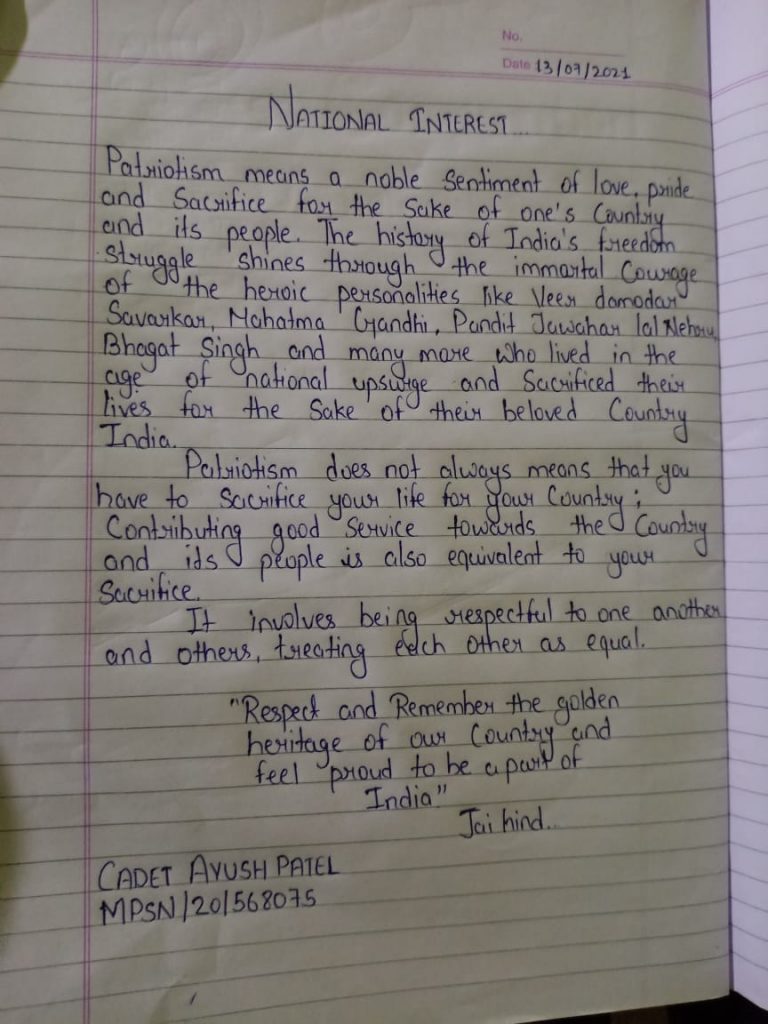 No.
Date 13/07/2021
NATIONAL INTEREST...
Patriotism means a noble Sentiment of love, pride
and Sacrifice for the Sake of one's Country
and its people. The history of India's freedom
struggle shines through the immortal Courage
of the heroic personalities like Veer damodar
Savarkar, Mahatma Gandhi, Pandit Jawahar lal Nehru,
Bhagat Singh and many more who lived in the
age of national upsurge and Sacrificed their
lives for the Sake of their beloved Country
India.
Patriotism does not always means that you
have to Sacrifice your life for your Country;
Contributing good Service towards the Country
and its people is also equivalent to your
Sacrifice.
It involves being respectful to one another
and others, treating each other as equal.
"Respect and Remember the golden
heritage of our Country and
feel proud to be a part of
India"
Jai hind...
CADET AYUSH PATEL
MPSN/20/568075